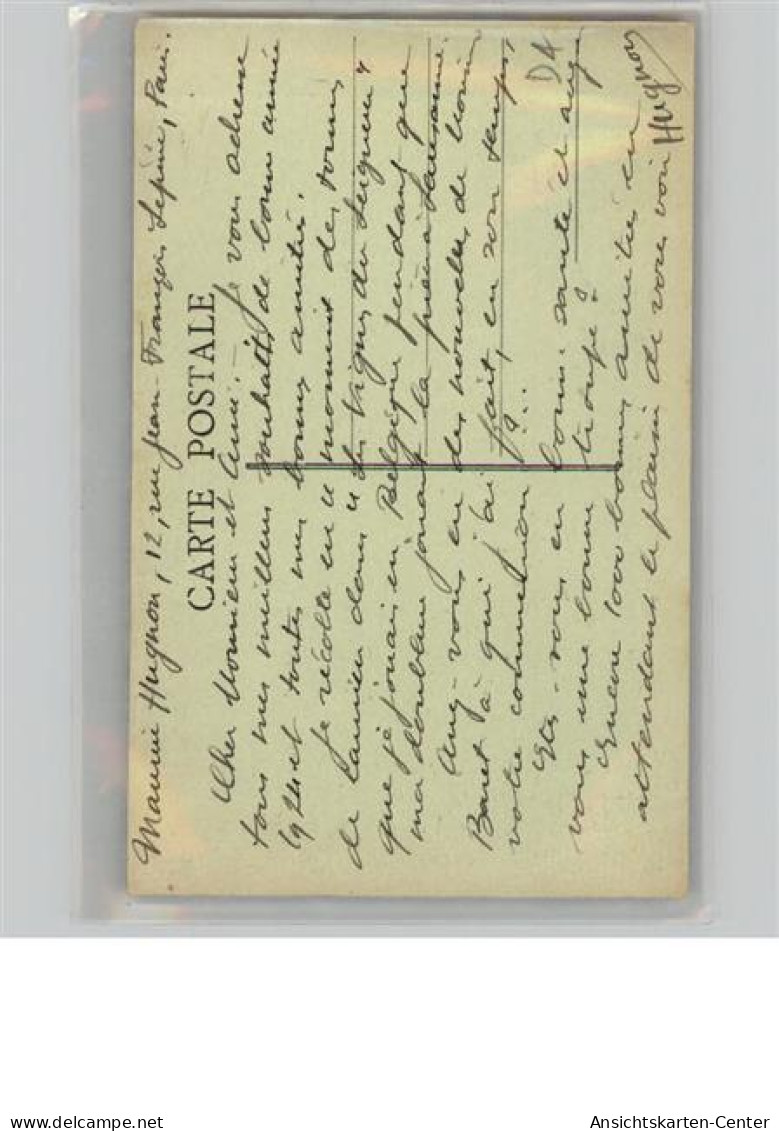 Maurice Hugnon, 12, rue Jean-François Lépine, Paris.
CARTE POSTALE
D4
Cher Monsieur et Ami. - Je vous adresse
tous mes meilleurs souhaits de bonne année
1924 et toutes mes bonnes amitiés.
Je récolte en ce moment des tonnes
de lauriers dans "Les Vignes du Seigneur"
que je jouais en Belgique pendant que
ma doublure jouait la pièce à Lausanne.
Avez-vous eu des nouvelles de Monsieur
Baret à qui j'ai fait, en son temps,
votre commission ?...
Etes-vous en bonne santé et avez
vous une bonne troupe ?
Encore 1000 bonnes amitiés en
attendant le plaisir de vous voir
Hugnon
delcampe.net
Ansichtskarten-Center